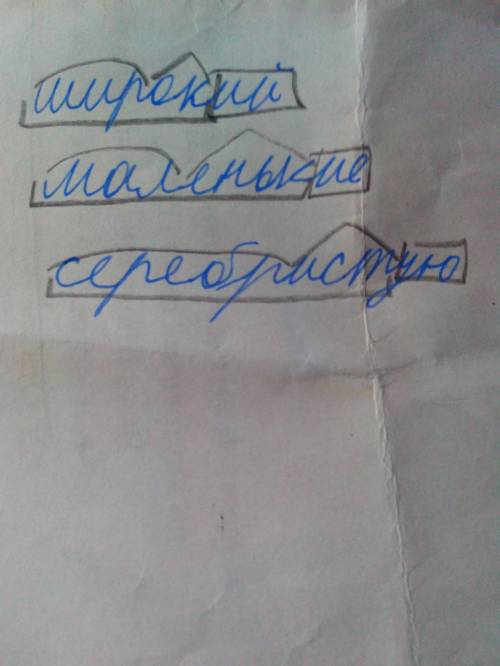 широкий
маленькие
серебристую